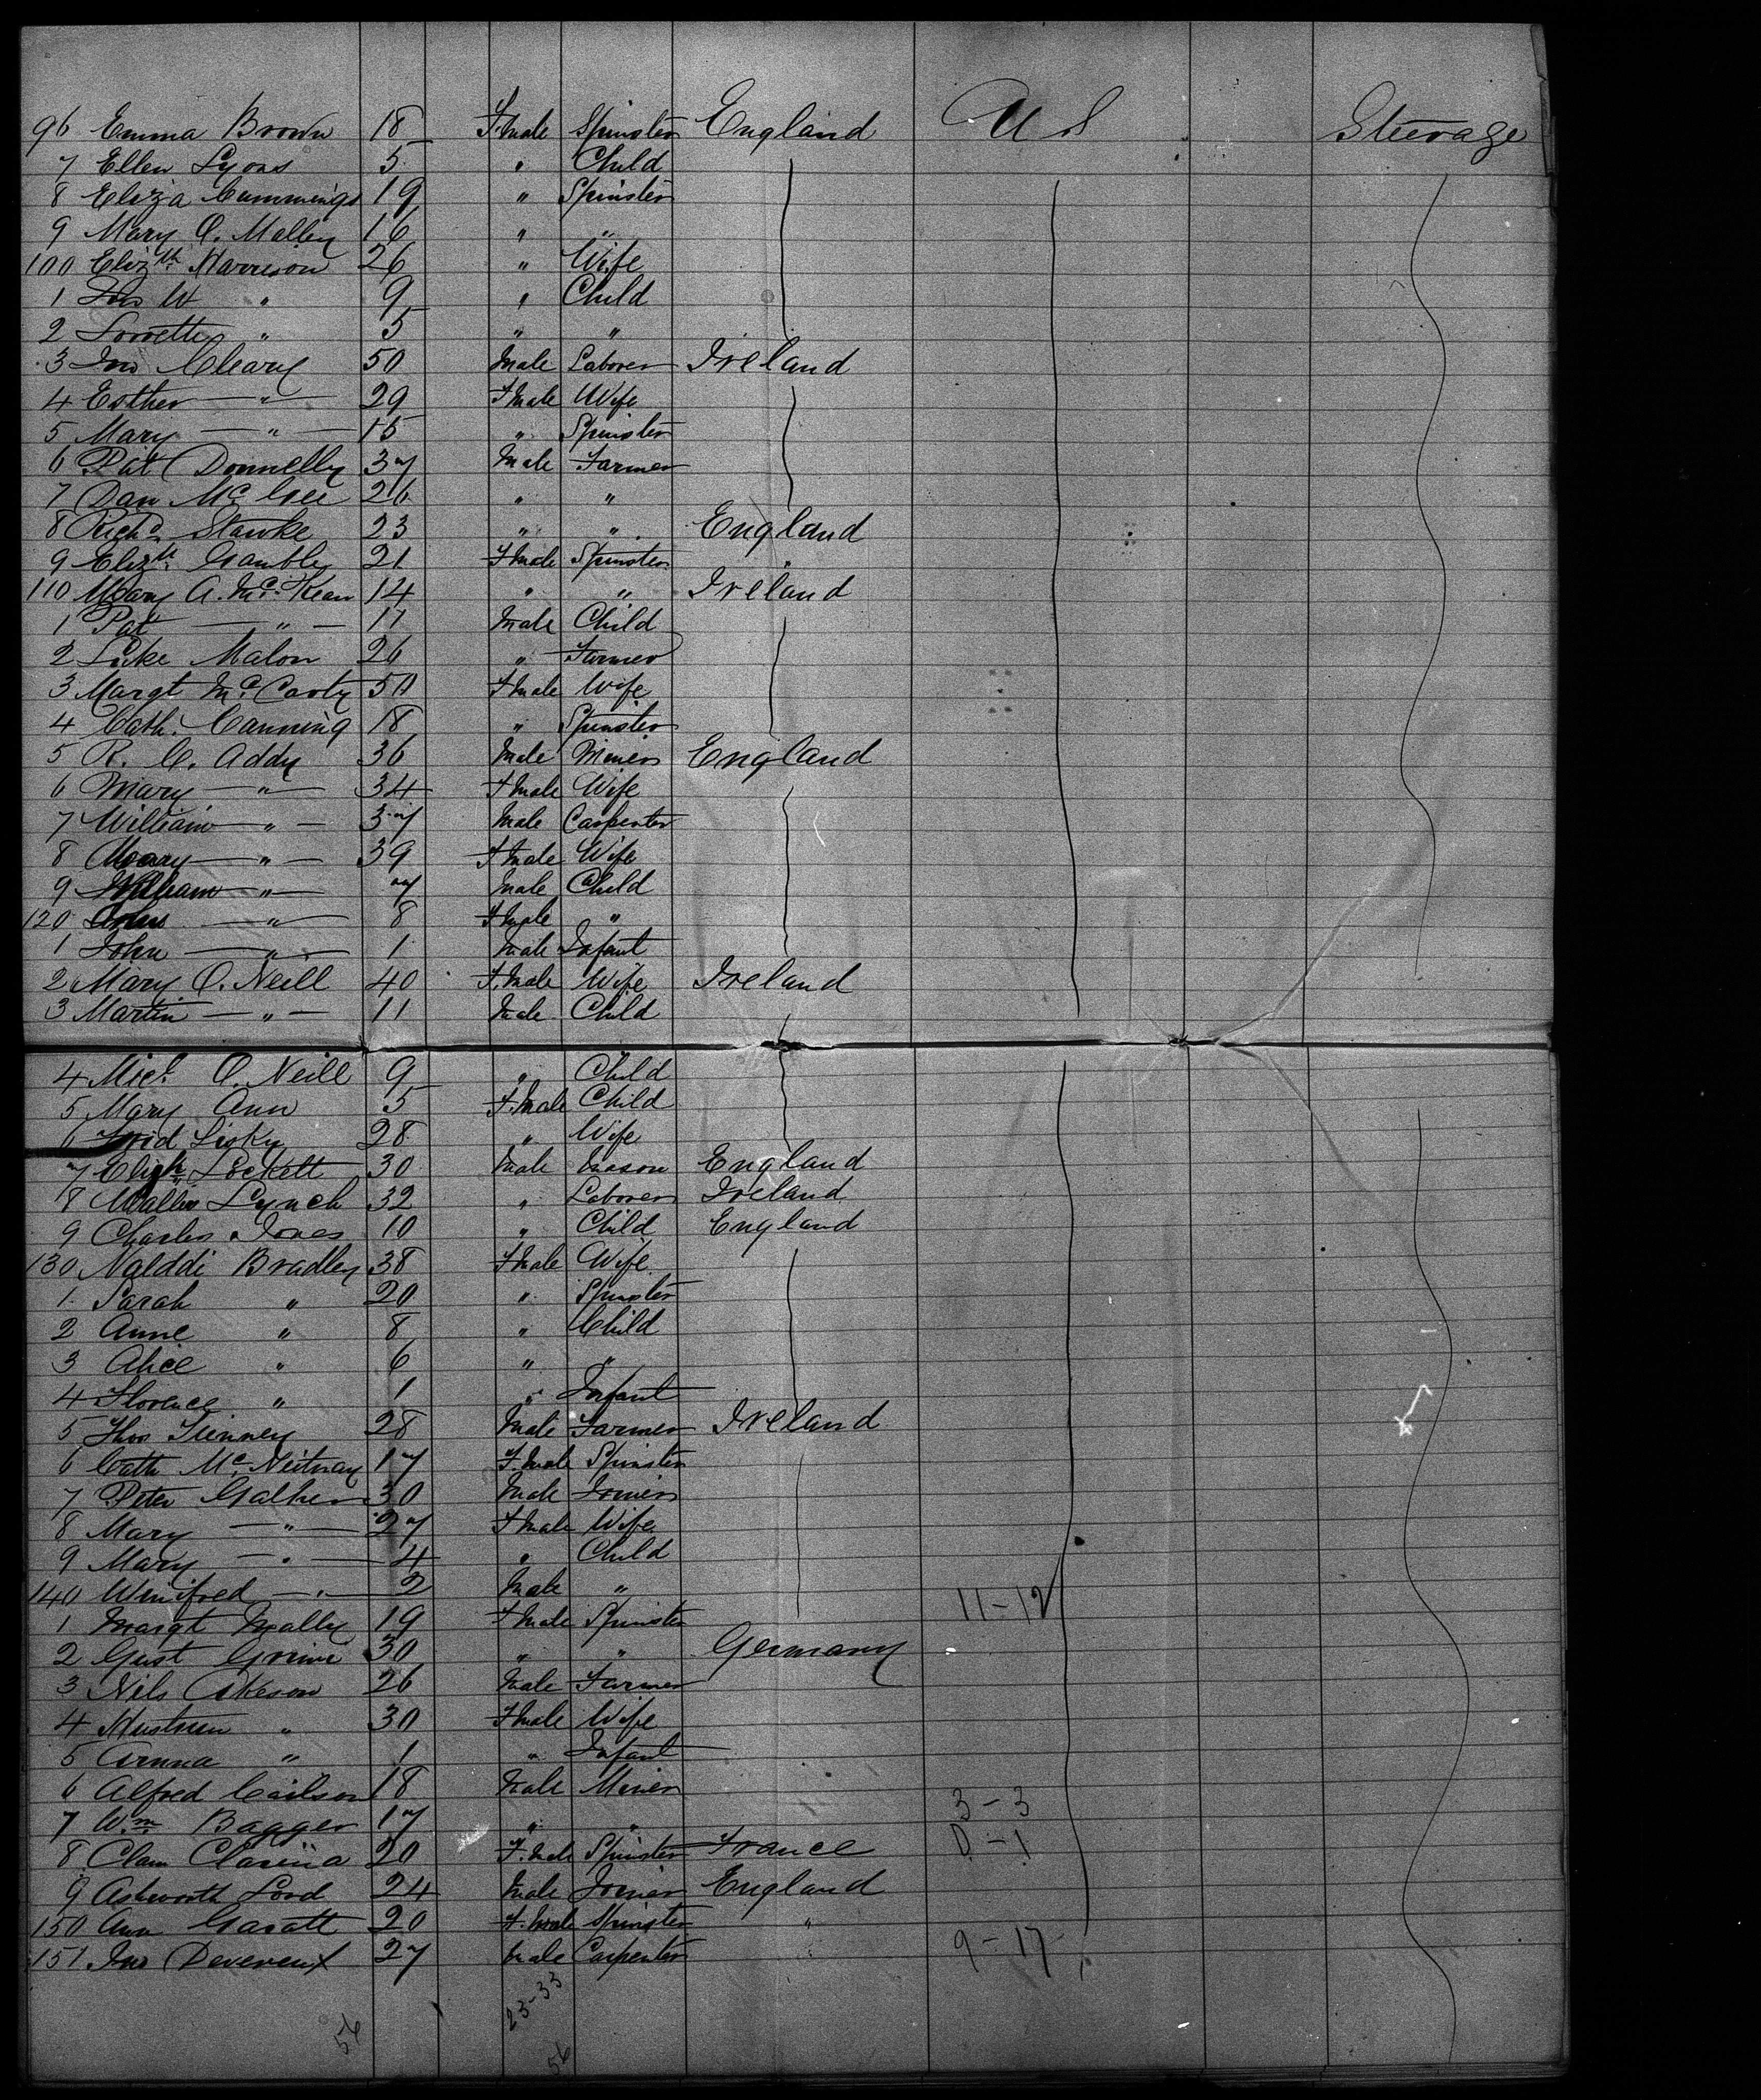 96 Emma Brown 18 F.male Spinster England U S Steerage
7 Ellen Lyons 5 " Child
8 Eliza Cummings 19 " Spinster
9 Mary O. Malley 16 " "
100 Elizth Harrison 26 " Wife
1 W " 9 " Child
2 " 5 " "
3 Jno Cleary 50 Male Laborer Ireland
4 Esther — " — 29 F male Wife
5 Mary — " — 15 " Spinster
6 Pat Donnelly 37 Male Farmer
7 Dan Mc 26 " "
8 Richd Stawke 23 " " England
9 Elizth Gamble 21 F male Spinster
110 Mary A. Mc Kean 14 " " Ireland
1 Pat — " — 11 Male Child
2 Luke Malon 26 " Farmer
3 Margt Mc Carty 50 F male Wife
4 Cath. Canning 18 " Spinster
5 R. C. Addy 36 Male Miner England
6 Mary — " — 34 F male Wife
7 William — " — 37 Male Carpenter
8 Mary — " — 39 F male Wife
9 William — " — 7 Male Child
120 — " — 8 F male "
1 John — " — 1 Male Infant
2 Mary O. Neill 40 F. male Wife Ireland
3 Martin — " — 11 Male Child
4 Michl O. Neill 9 " Child
5 Mary Ann 5 F. male Child
6 Lisky 28 " Wife
7 Lockett 30 Male Mason England
8 Lynch 32 " Laborer Ireland
9 Charles Jones 10 " Child England
130 Bradley 38 F male Wife
1 Sarah " 20 " Spinster
2 Anne " 8 " Child
3 Alice " 6 " "
4 Florence " 1 " Infant
5 Thos Tienney 28 Male Farmer Ireland
6 Cath Mc 17 F. male Spinster
7 Peter Galher 30 Male Joiner
8 Mary — " — 27 F male Wife
9 Mary — " — 4 " Child
140 Winifred — " — 2 Male " 11-12
1 Margt Mally 19 F male Spinster
2 Gust 30 " " Germany
3 Nils Akeson 26 Male Farmer
4 " 30 F male Wife
5 " 1 " Infant
6 Alfred Carlson 18 Male Miner
7 Wm Bagger 17 " " 3-3
8 Clasina 20 F. male Spinster France 0-1
9 Ashworth Lord 24 Male Joiner England
150 Ann Garatt 20 F. male Spinster "
151 Jno Devereux 27 Male Carpenter " 9-17
23-33
56
56